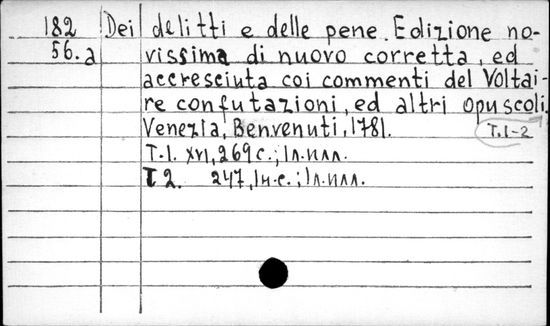 182 Dei delitti e delle pene. Edizione no-
56.a vissima di nuovo corretta, ed
accresciuta coi commenti del Voltai-
re confutazioni, ed altri opuscoli,
Venezia, Benvenuti, 1781. T.1-2
T.1. XVI, 269 с.; 1л.илл.
T 2. 247, 1н.с.; 1л.илл.